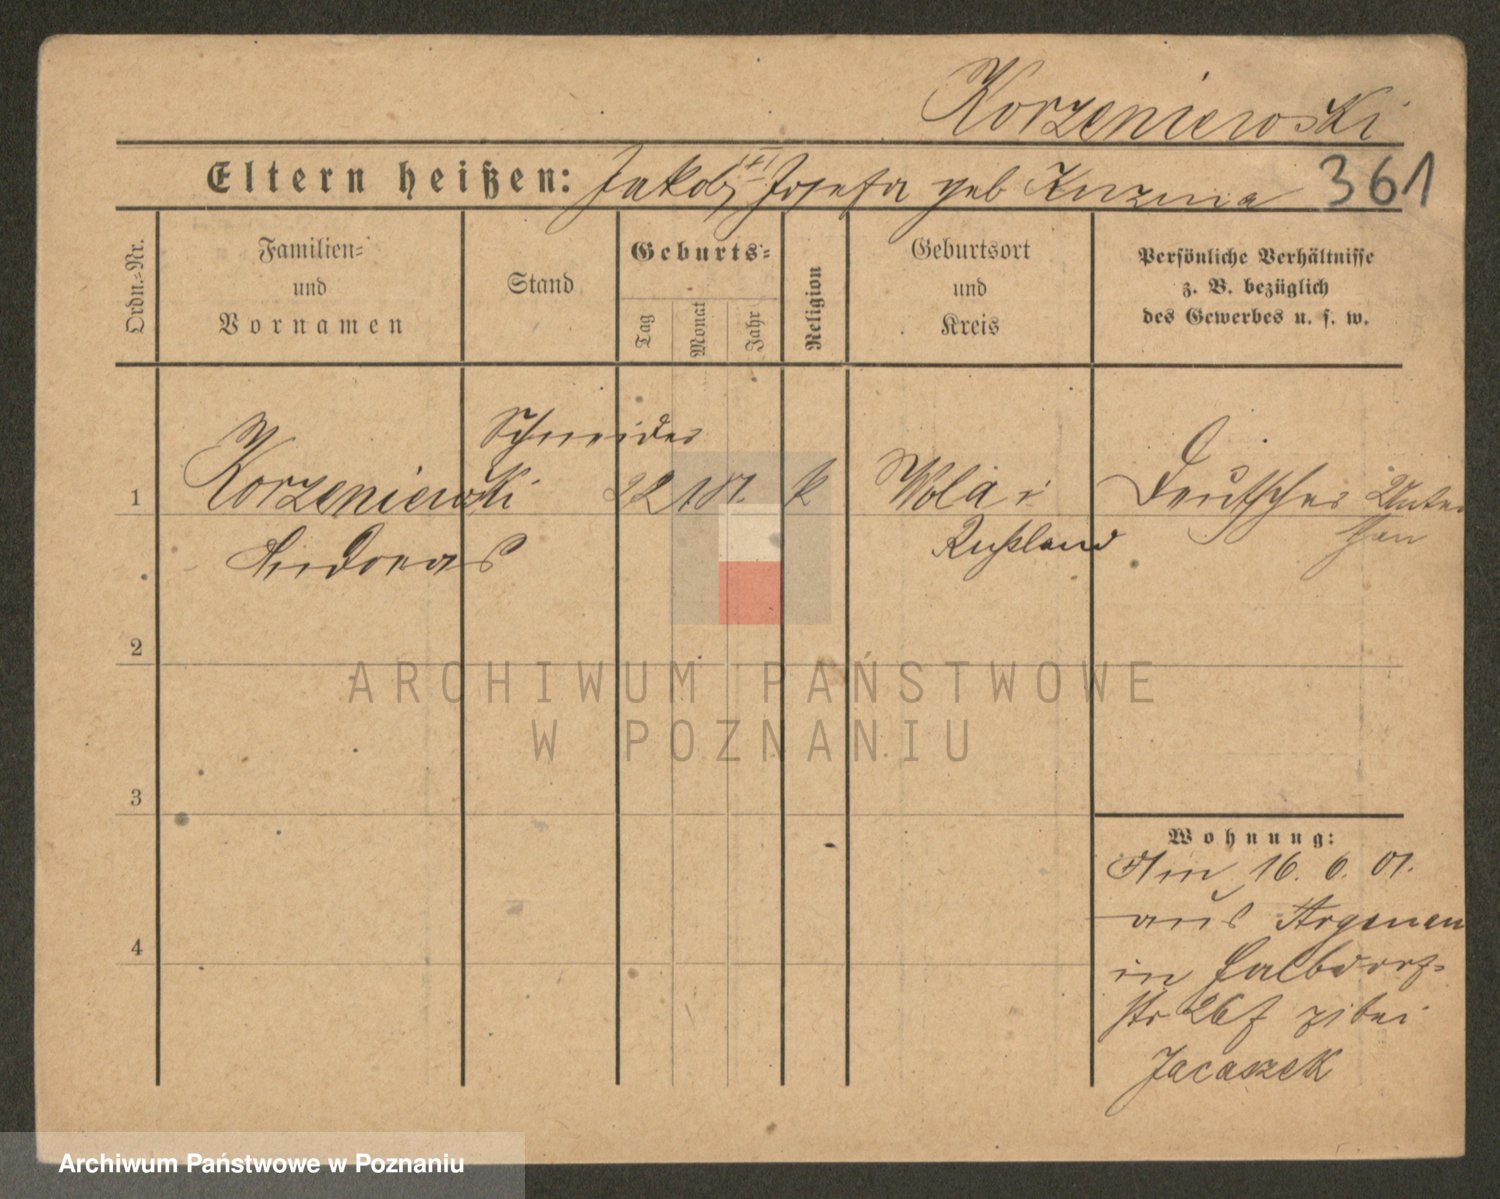 Korzeniewski
Eltern heißen: Jakob Josefa geb Kuzma 361
Ordn.-Nr.
Familien-
und
Vornamen
Stand
Geburts-
Tag
Monat
Jahr
Religion
Geburtsort
und
Kreis
Persönliche Verhältnisse
z. B. bezüglich
des Gewerbes u. s. w.
Schneider
1 Korzeniewski 22 1 81. k Wola i Deutscher Unter
Andreas Rußland than
2
ARCHIWUM PAŃSTWOWE
W POZNANIU
3
Wohnung:
Am 16. 6. 01.
aus Argenau
in Halbdorf-
4
str 26 bei
Jacaszek
Archiwum Państwowe w Poznaniu